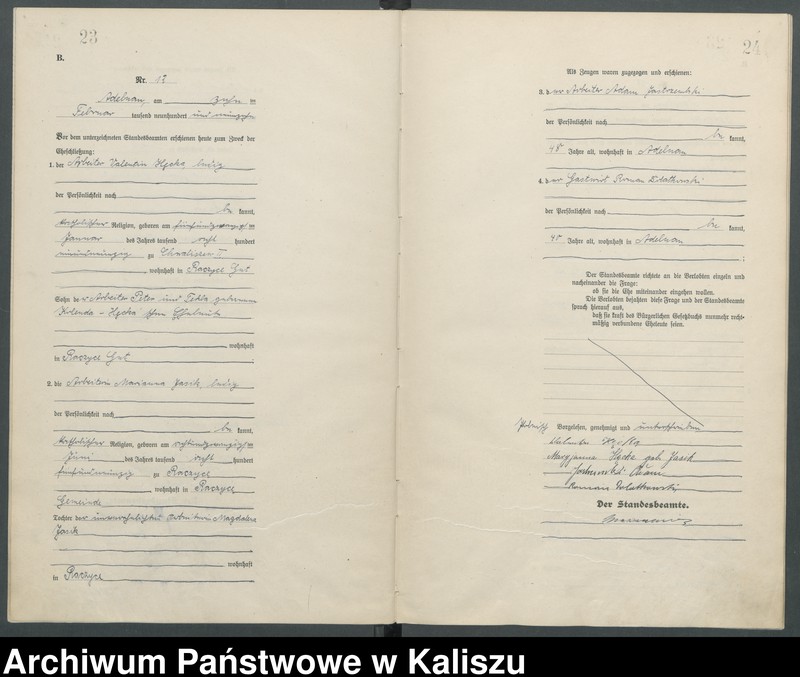 23
B.
Nr. 12
Adelnau, am zehn ten
Februar tausend neunhundert und neunzehn
Vor dem unterzeichneten Standesbeamten erschienen heute zum Zweck der
Eheschließung:
1. der Arbeiter Valentin Hycka, ledig
der Persönlichkeit nach
be kannt,
katholischer Religion, geboren am fünfundzwanzigsten
Januar des Jahres tausend acht hundert
neunundneunzig zu
, wohnhaft in Raczyce Gut
Sohn des Arbeiters Peter und Thekla geborenen
Kolenda - Hycka
wohnhaft
in Raczyce Gut
2. die Arbeiterin Marianna Jasik, ledig
der Persönlichkeit nach
be kannt,
katholischer Religion, geboren am achtundzwanzigsten
Juni des Jahres tausend acht hundert
fünfundneunzig zu Raczyce
, wohnhaft in Raczyce
Gemeinde
Tochter der unverehelichten Arbeiterin Magdalena
Jasik
wohnhaft
in Raczyce
24
Als Zeugen waren zugezogen und erschienen:
3. der Arbeiter Adam Jastrzembski
der Persönlichkeit nach
be kannt,
48 Jahre alt, wohnhaft in Adelnau
4. der Gastwirt Roman
der Persönlichkeit nach
be kannt,
Jahre alt, wohnhaft in Adelnau
;
Der Standesbeamte richtete an die Verlobten einzeln und
nacheinander die Frage:
ob sie die Ehe miteinander eingehen wollen.
Die Verlobten bejahten diese Frage und der Standesbeamte
sprach hierauf aus,
daß sie kraft des Bürgerlichen Gesetzbuchs nunmehr recht-
mäßig verbundene Eheleute seien.
Polnisch Vorgelesen, genehmigt und unterschrieben
Maryjanna Hycka geb. Jasik
Adam
Roman
Der Standesbeamte.
Archiwum Państwowe w Kaliszu